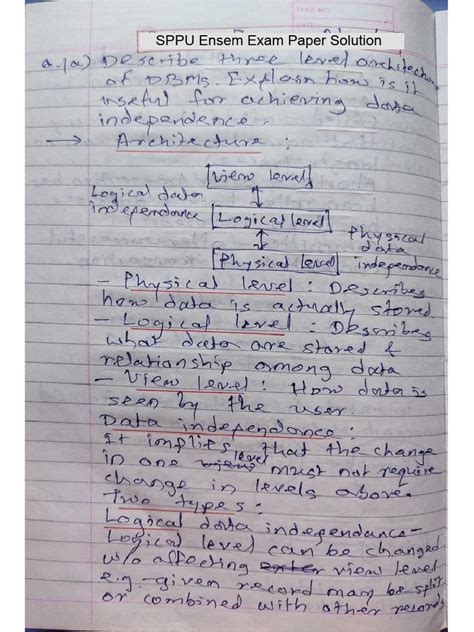 SPPU Ensem Exam Paper Solution
Q.1a) Describe three level architecture
of DBMS. Explain how is it
useful for achieving data
independence.
→ Architecture :
View level
Logical data
independance
Logical level
Physical
data
independance
Physical level
- Physical level : Describes
how data is actually stored
- Logical level : Describes
what data are stored &
relationship among data
- View level : How data is
seen by the user.
Data independence :
It implies that the change
in one level must not require
change in levels above.
Two types :
Logical data independance-
Logical level can be changed
w/o affecting exter view level
e.g.-given record may be split
or combined with other records